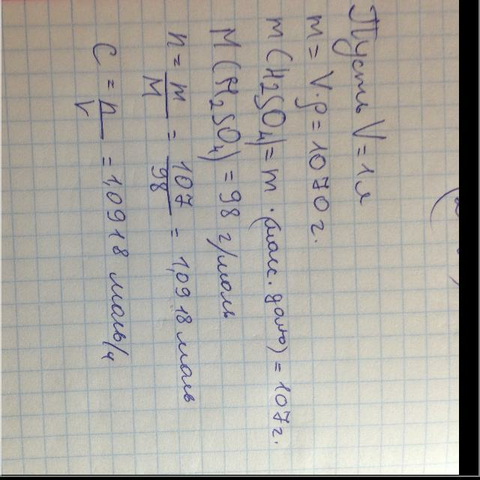 Пусть V = 1 л
m = V·ρ = 1070 г.
m(H₂SO₄) = m · (масс. доля) = 107 г.
M(H₂SO₄) = 98 г/моль
n = m/M = 107/98 = 1,0918 моль
C = n/V = 1,0918 моль/л